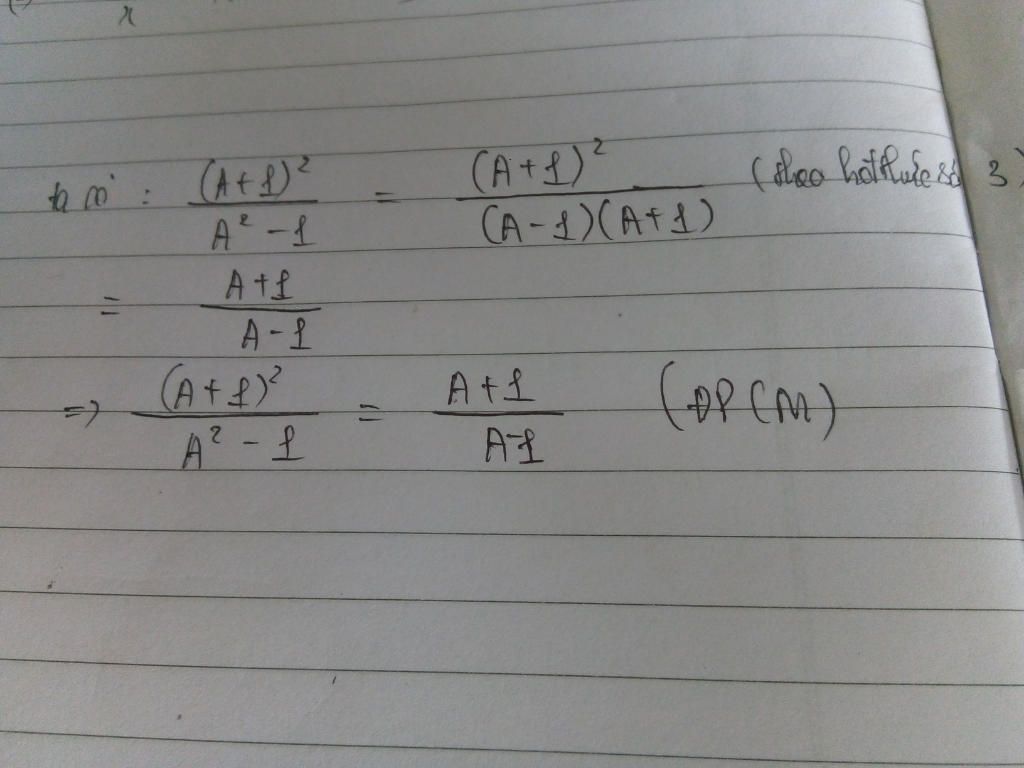 x
: (A+1)² / A² - 1 = (A+1)² / (A-1)(A+1) (theo hđthức số 3)
= A+1 / A-1
=> (A+1)² / A² - 1 = A+1 / A-1 (ĐPCM)